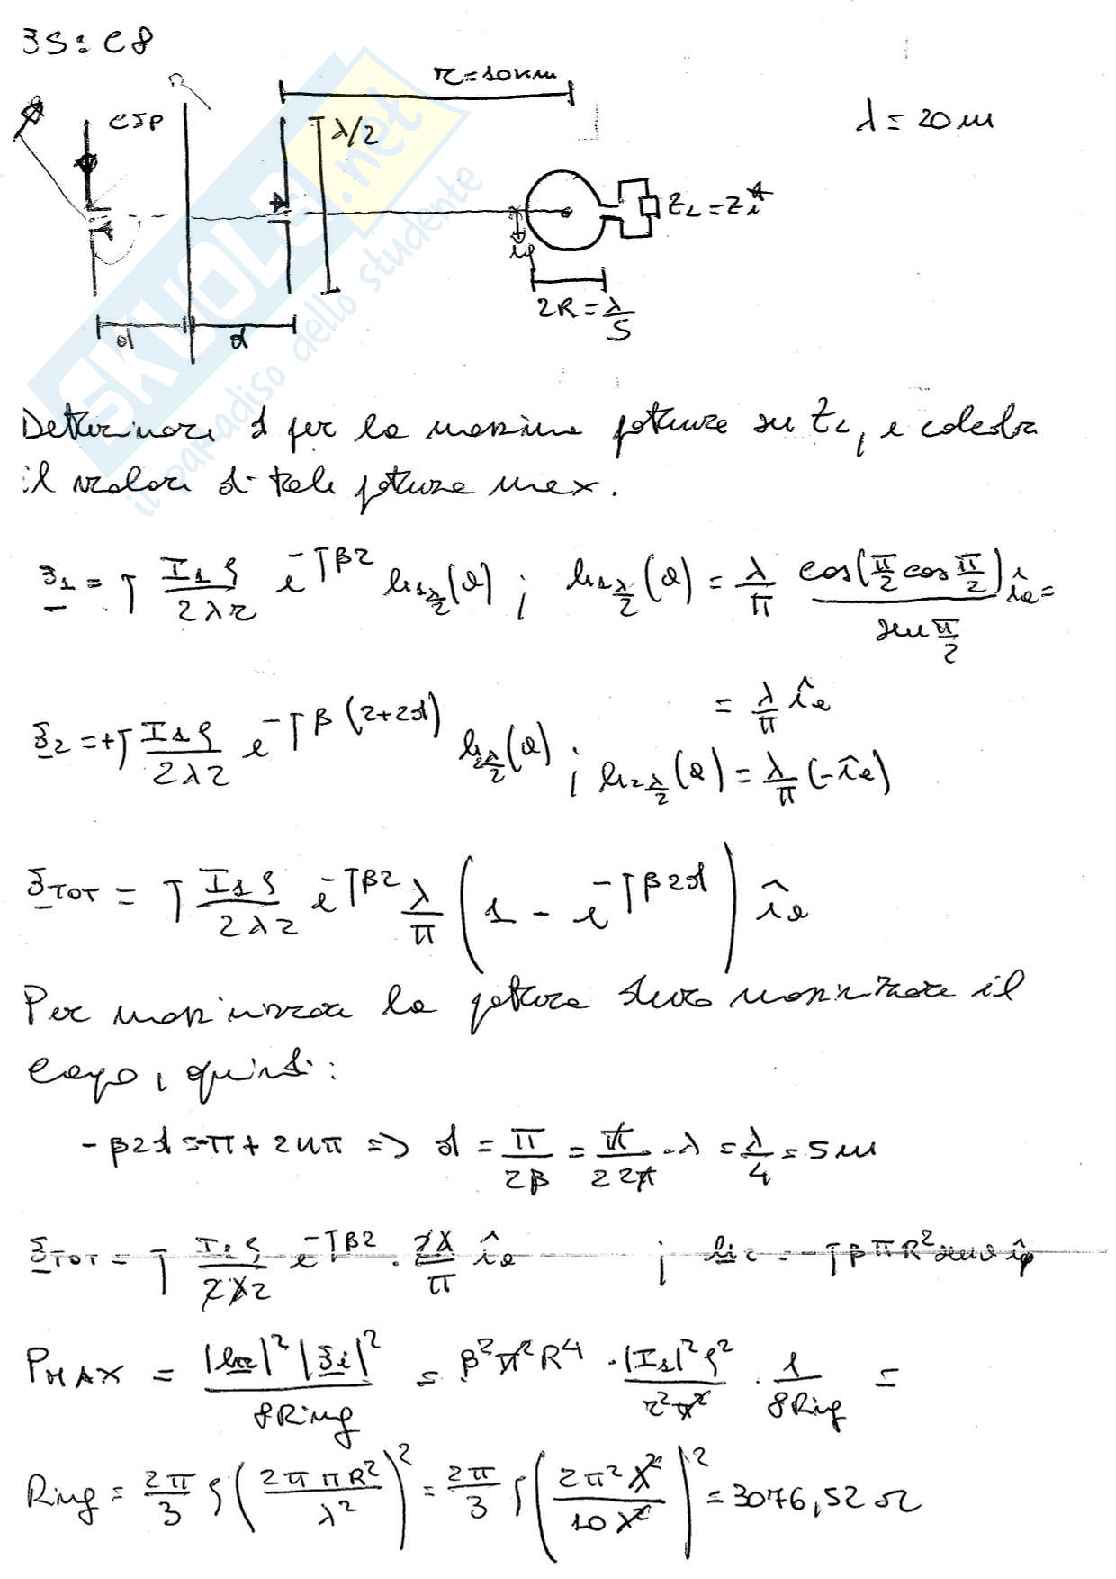 ES: C8
r = 10 km
CJP
λ/2
λ = 20 m
Z_L = Z_i^*
i_φ
d d
2R = λ/5
Determinare d per la massima potenza su Z_L, e calcola
il valore di tale potenza max.
E_1 = j (I_1 ζ / 2λr) e^{-jβr} h_{1 λ/2}(θ) ; h_{1 λ/2}(θ) = λ/π cos(π/2 cos π/2) / sen π/2 î_θ =
= λ/π î_θ
E_2 = +j (I_1 ζ / 2λr) e^{-jβ(r+2d)} h_{2 λ/2}(θ) ; h_{2 λ/2}(θ) = λ/π (-î_θ)
E_TOT = j (I_1 ζ / 2λr) e^{-jβr} λ/π (1 - e^{-jβ2d}) î_θ
Per massimizzare la potenza devo massimizzare il
campo, quindi:
-β2d = -π + 2nπ => d = π/2β = π/(2 2π) · λ = λ/4 = 5 m
E_TOT = j (I_1 ζ / 2λr) e^{-jβr} · 2λ/π î_θ ; h_r = -jβπR² senθ î_φ
P_MAX = |h_r|² |E_i|² / 8Ring = β² π² R⁴ · |I_1|² ζ² / r² π² · 1 / 8Ring =
Ring = 2π/3 ζ (2π πR² / λ²)² = 2π/3 ζ (2π² λ² / 10 λ²)² = 3076,52 Ω
SKUOLA.net
il paradiso dello studente